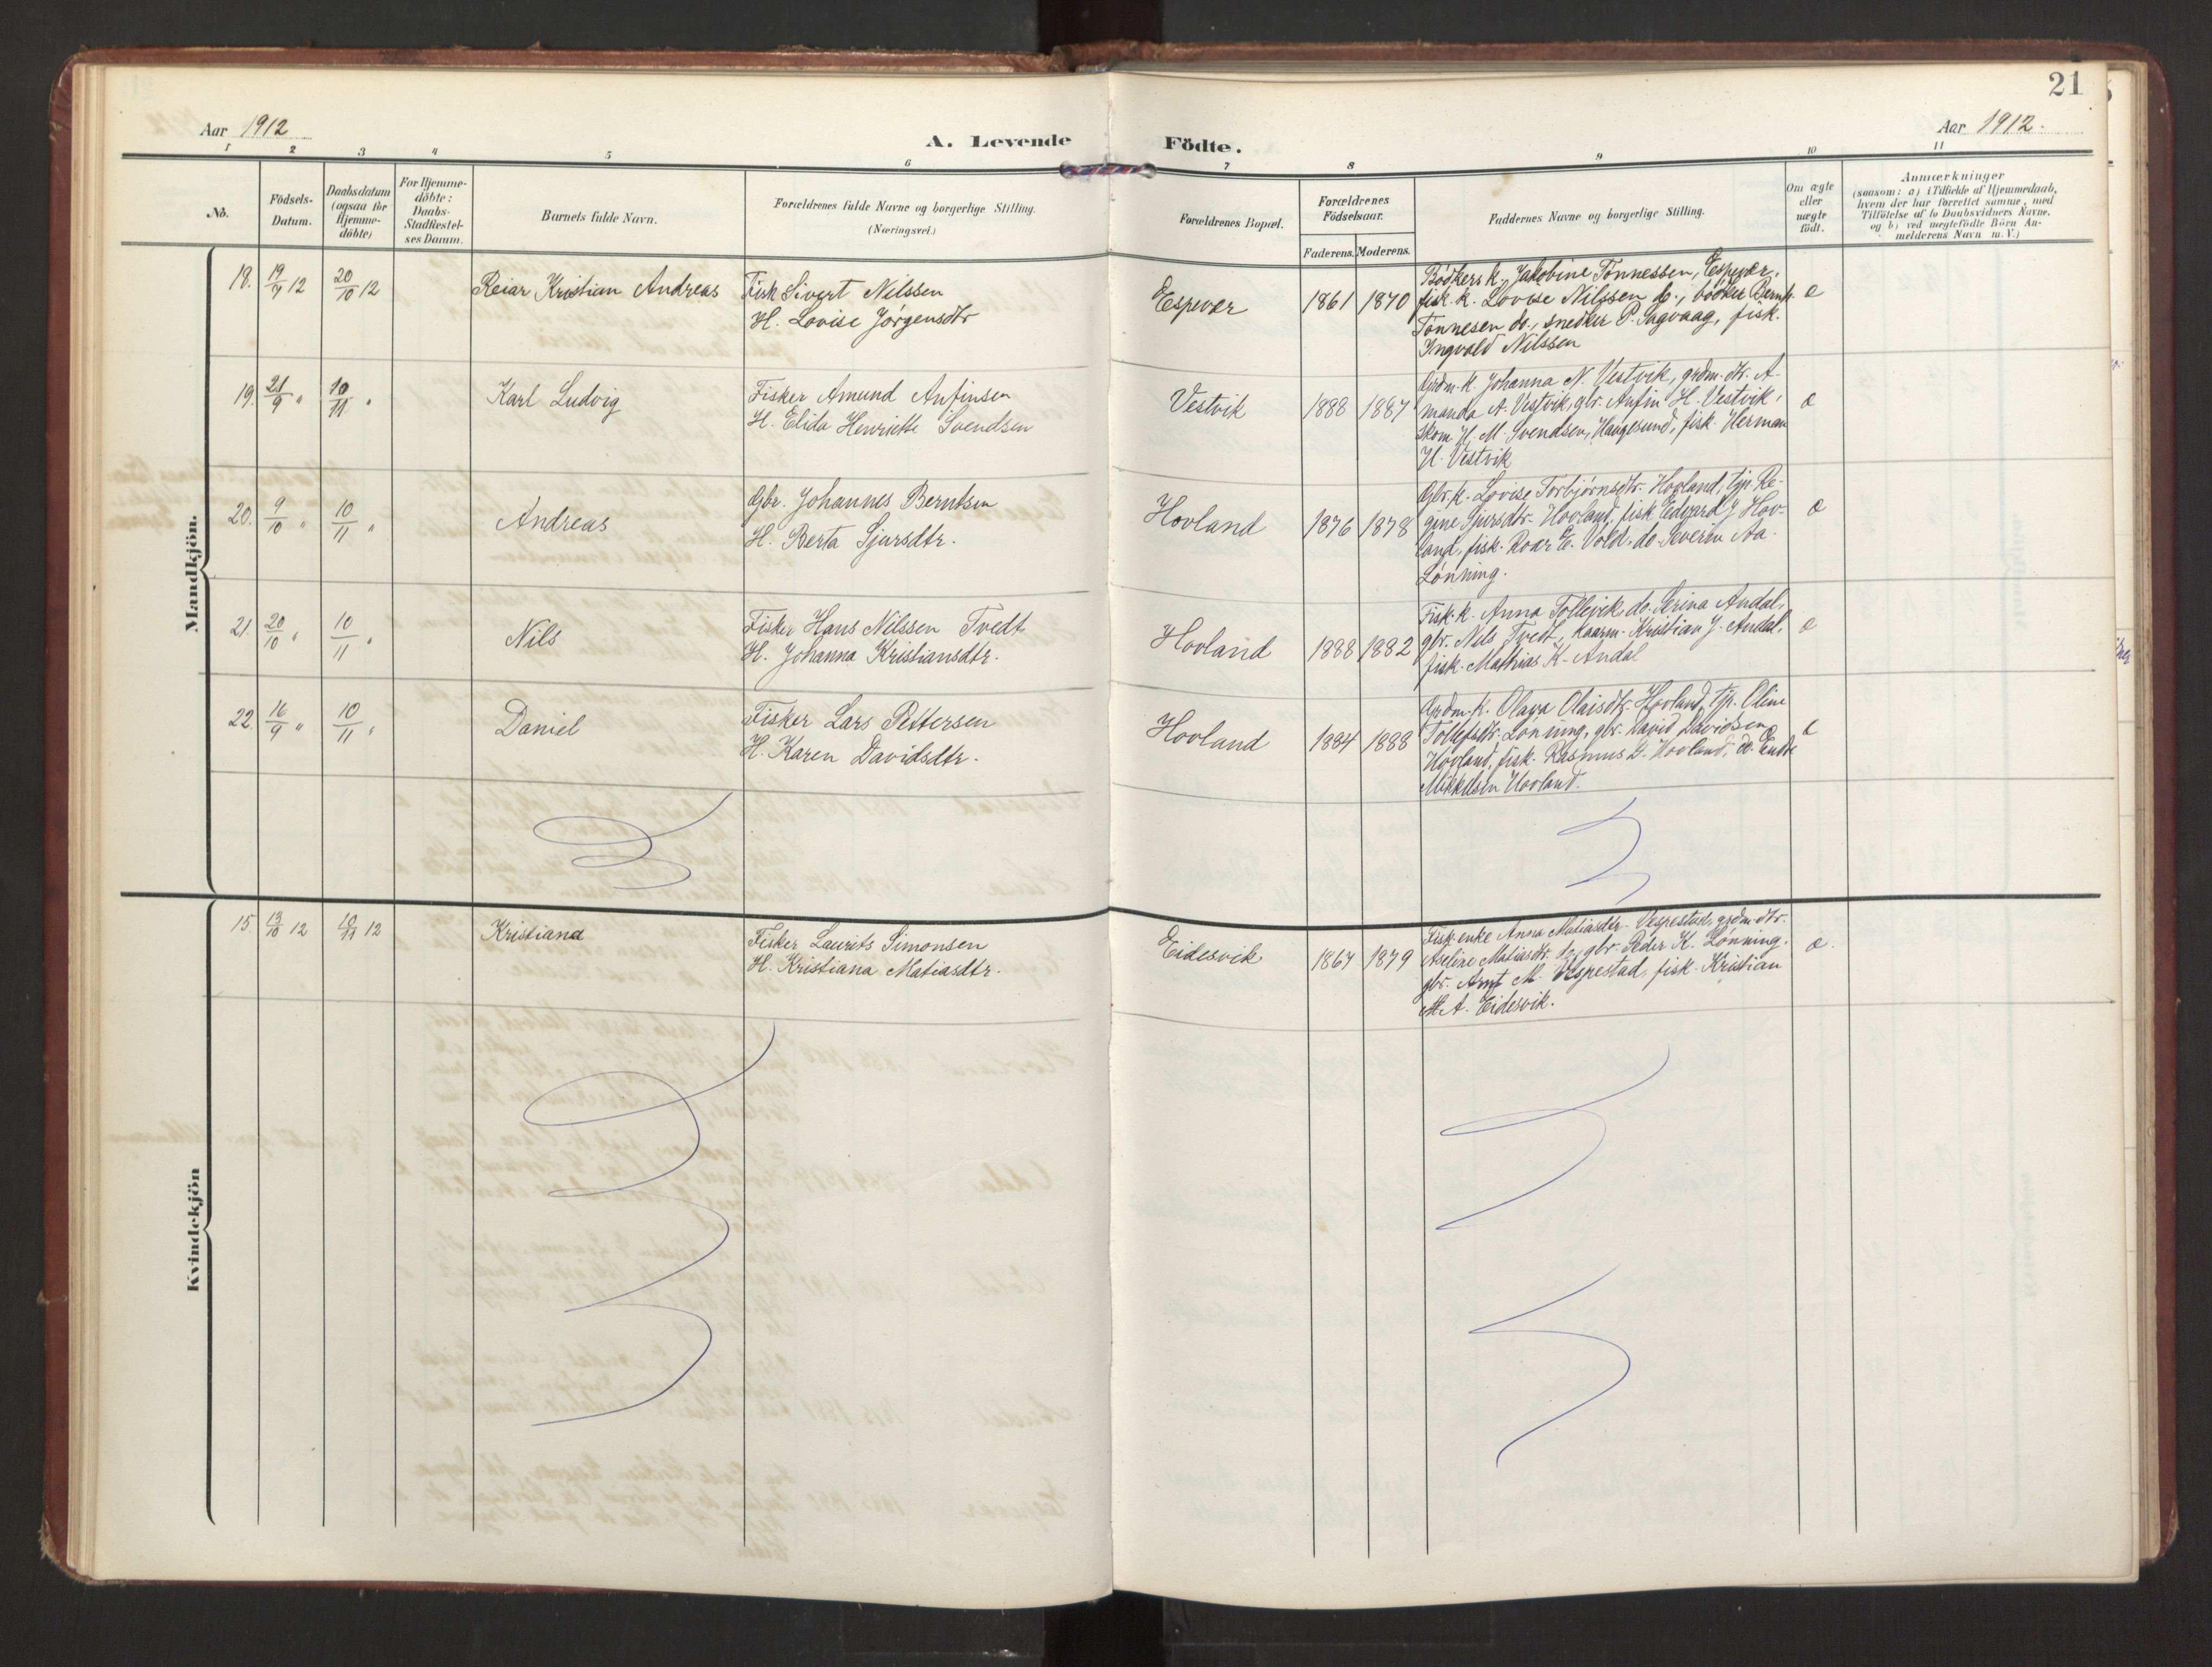 21
Aar 1912
A. Levende Födte.
Aar 1912.
1 2 3 4 5 6 7 8 9 10 11
No.
Födsels-
Datum.
Daabsdatum
(ogsaa for
Hjemme-
döbte)
For Hjemme-
döbte:
Daabs-
Stadfestel-
ses Datum.
Barnets fulde Navn.
Forældrenes fulde Navne og borgerlige Stilling.
(Næringsvei.)
Forældrenes Bopæl.
Forældrenes
Födselsaar.
Faderens. Moderens.
Faddernes Navne og borgerlige Stilling.
Om ægte
eller
uægte
födt.
Anmærkninger
(saasom: a) i Tilfælde af Hjemmedaab,
hvem der har forrettet samme, med
Tilföielse af to Daabsvidners Navne.
og b) ved uægtefödte Börn An-
melderens Navn m. V.)
Mandkjön.
18. 19/7 12 20/10 12
Reiar Kristian Andreas
Fisk Sivert Nilssen
H. Lovise Jørgensdtr
Espevær
1861 1870
Bødkers k. Jakobine Tønnessen, Espevær,
fisk. k. Lovise Nilssen do., bødker Bernh.
Tønnesen do., snedker P. Sagvaag, fisk.
Ingvald Nilssen
æ
19. 21/9 " 10/11 "
Karl Ludvig
Fisker Amund Anfinsen
H. Elida Henriette Svendsen
Vestvik
1888 1887
Grdm. k. Johanna N. Vestvik, grdm. dtr. A-
manda A. Vestvik, gbr. Anfin H. Vestvik,
skom. H. M. Svendsen, Haugesund, fisk. Herman
H. Vestvik
æ
20. 9/10 " 10/11 "
Andreas
Gbr. Johannes Berntsen
H. Berta Sjursdtr.
Hovland
1876 1878
Gbr. k. Lovise Torbjørnsdtr. Hovland, tjp. Re-
gine Sjursdtr. Hovland, fisk. Edvard J. Hov-
land, fisk. Roar E. Vold, do. Severin Aa.
Lønning.
æ
21. 20/10 " 10/11 "
Nils
Fisker Hans Nilssen Tvedt
H. Johanna Kristiansdtr.
Hovland
1888 1882
Fisk. k. Anna Tollevik, do. Serina Andal,
gbr. Nils Tvedt, kaarm. Kristian J. Andal,
fisk. Mathias K. Andal
æ
22 16/9 " 10/11 "
Daniel
Fisker Lars Pettersen
H. Karen Davidsdtr.
Hovland
1884 1888
Grdm. k. Olava Olaisdtr. Hovland, tjp. Oline
Tollefsdtr. Lønning, gbr. David Davidsen
Hovland, fisk. Rasmus D. Hovland, do. Endre
Mikkelsen Hovland.
æ
Kvindekjön
15. 13/10 12 10/11 12
Kristiana
Fisker Laurits Simonsen
H. Kristiana Matiasdtr.
Eidesvik
1867 1879
Fisk. enke Anna Matiasdtr. Vespestad, grdm. dtr.
Aseline Matiasdtr. do., gbr. Peder K. Lønning,
gbr. Arnt M. Vespestad, fisk. Kristian
M. A. Eidesvik.
æ.